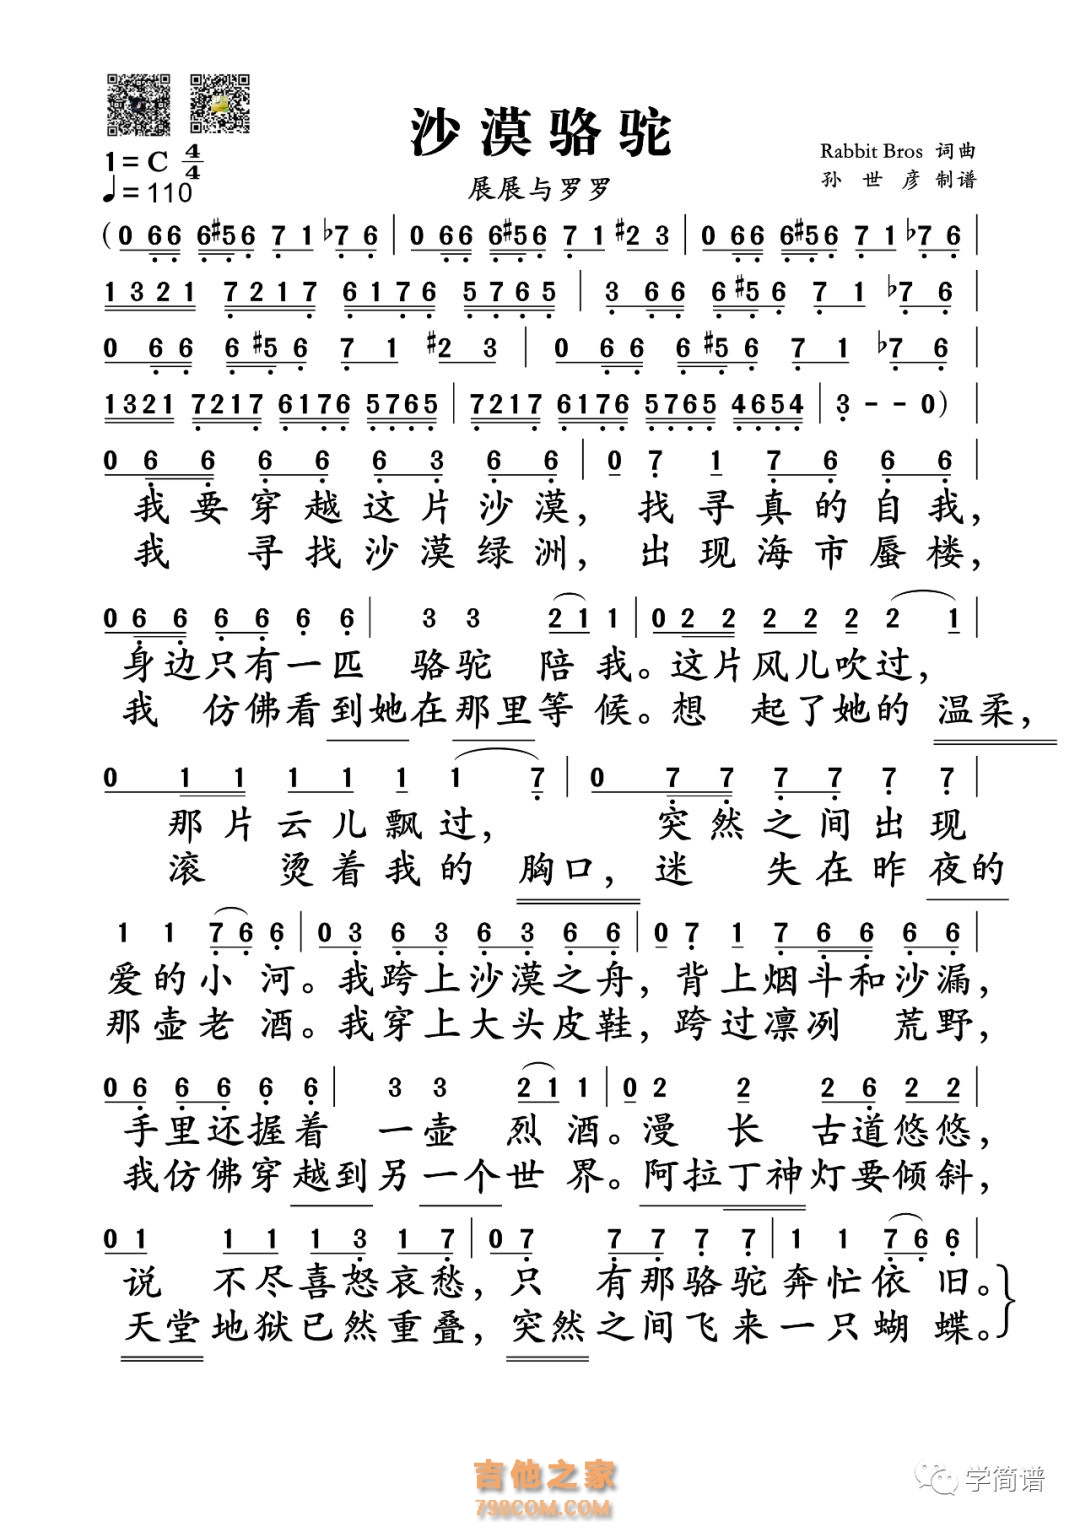 沙漠骆驼
1=C 4/4
Rabbit Bros 词曲
♩=110
展展与罗罗
孙世彦 制谱
(0 66 6#56 7 1 ♭7 6 | 0 66 6#56 7 1 #2 3 | 0 66 6#56 7 1 ♭7 6 |
1321 7217 6176 5765 | 3 66 6#56 7 1 ♭7 6 |
0 66 6#56 7 1 #2 3 | 0 66 6#56 7 1 ♭7 6 |
1321 7217 6176 5765 | 7217 6176 5765 4654 | 3 - - 0) |
0 6 6 6 6 6 3 6 6 | 0 7 1 7 6 6 6 |
我要穿越这片沙漠，找寻真的自我，
我 寻找沙漠绿洲，出现海市蜃楼，
0 6 6 6 6 6 6 | 3 3 2 1 1 | 0 2 2 2 2 2 2 1 |
身边只有一匹 骆驼 陪我。这片风儿吹过，
我 仿佛看到她在那里等候。想 起了她的 温柔，
0 1 1 1 1 1 1 7 | 0 7 7 7 7 7 7 |
那片云儿飘过， 突然之间出现
滚 烫着我的 胸口，迷 失在昨夜的
1 1 7 6 6 | 0 3 6 3 6 3 6 6 | 0 7 1 7 6 6 6 6 |
爱的小河。我跨上沙漠之舟，背上烟斗和沙漏，
那壶老酒。我穿上大头皮鞋，跨过凛冽 荒野，
0 6 6 6 6 6 | 3 3 2 1 1 | 0 2 2 2 6 2 2 |
手里还握着 一壶 烈酒。漫 长 古道悠悠，
我仿佛穿越到另一个世界。阿拉丁神灯要倾斜，
0 1 1 1 1 3 1 7 | 0 7 7 7 7 7 | 1 1 7 6 6 |
说 不尽喜怒哀愁，只 有那骆驼奔忙依旧。
天堂地狱已然重叠，突然之间飞来一只蝴蝶。
吉他之家
798COM.COM
学简谱